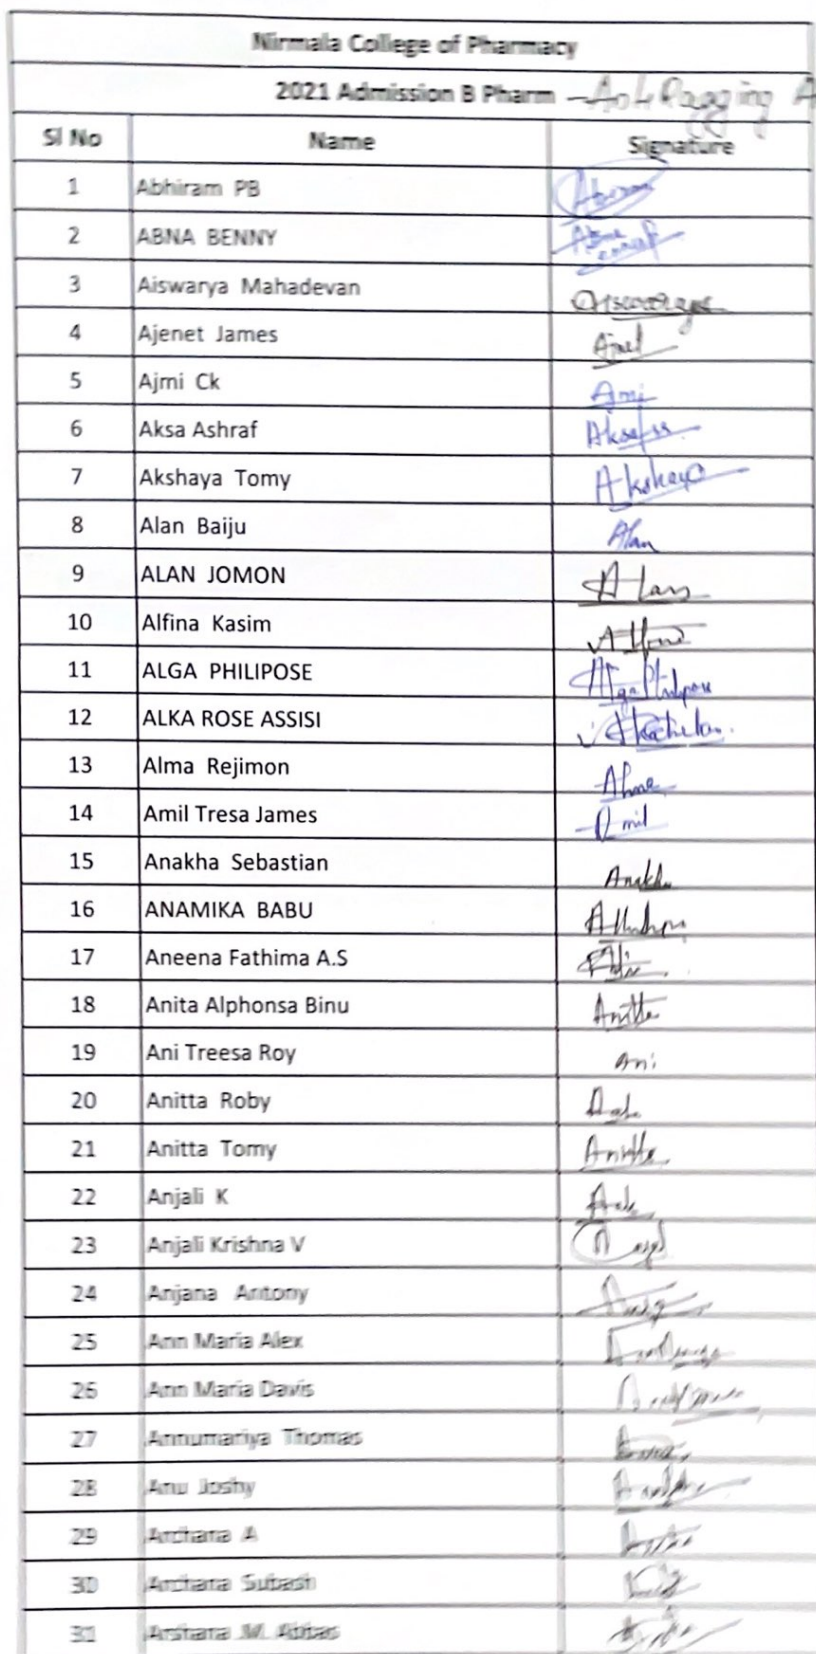 Nirmala College of Pharmacy
2021 Admission B Pharm - Anti Ragging A
Sl No Name Signature
1 Abhiram PB
2 ABNA BENNY
3 Aiswarya Mahadevan Aiswarya
4 Ajenet James
5 Ajmi Ck
6 Aksa Ashraf
7 Akshaya Tomy Akshaya
8 Alan Baiju Alan
9 ALAN JOMON Alan
10 Alfina Kasim
11 ALGA PHILIPOSE
12 ALKA ROSE ASSISI
13 Alma Rejimon Alma
14 Amil Tresa James Amil
15 Anakha Sebastian Anakha
16 ANAMIKA BABU
17 Aneena Fathima A.S
18 Anita Alphonsa Binu Anitta
19 Ani Treesa Roy Ani
20 Anitta Roby
21 Anitta Tomy Anitta
22 Anjali K
23 Anjali Krishna V
24 Anjana Antony
25 Ann Maria Alex
26 Ann Maria Davis
27 Annumariya Thomas
28 Anu Joshy
29 Archana A
30 Archana Subash
31 Arshana .M. Abbas